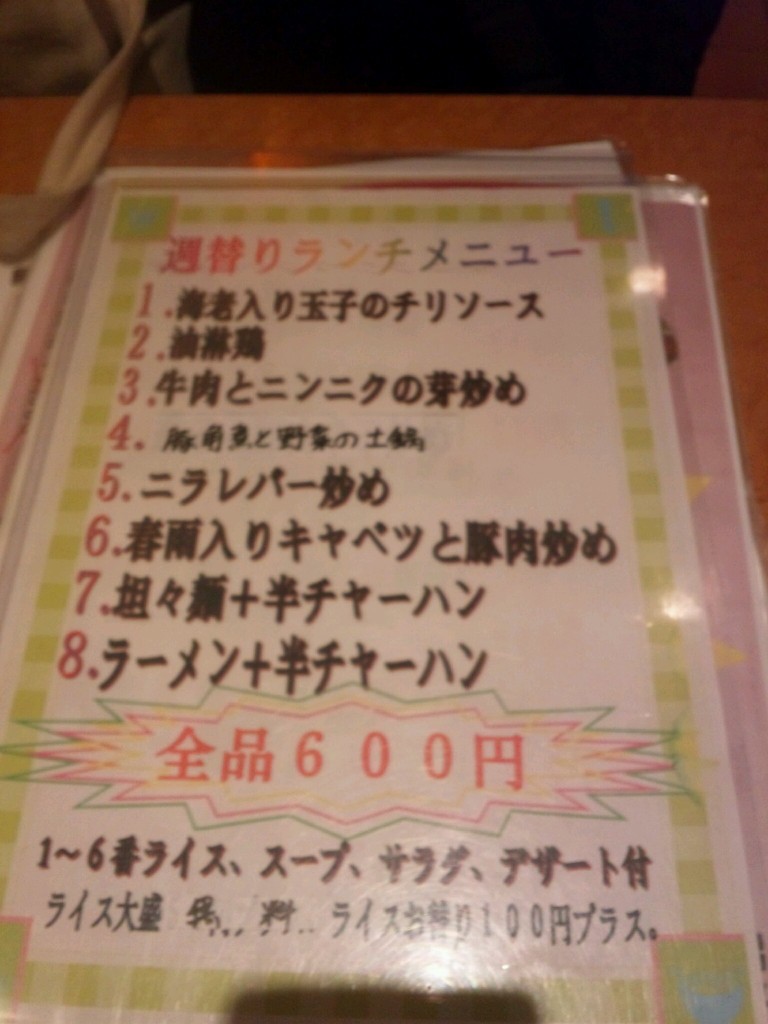 週替りランチメニュー
1.海老入り玉子のチリソース
2.油淋鶏
3.牛肉とニンニクの芽炒め
4.豚角煮と野菜の土鍋
5.ニラレバー炒め
6.春雨入りキャベツと豚肉炒め
7.坦々麺+半チャーハン
8.ラーメン+半チャーハン
全品600円
1~6番ライス、スープ、サラダ、デザート付
ライス大盛 ライスお替り100円プラス。